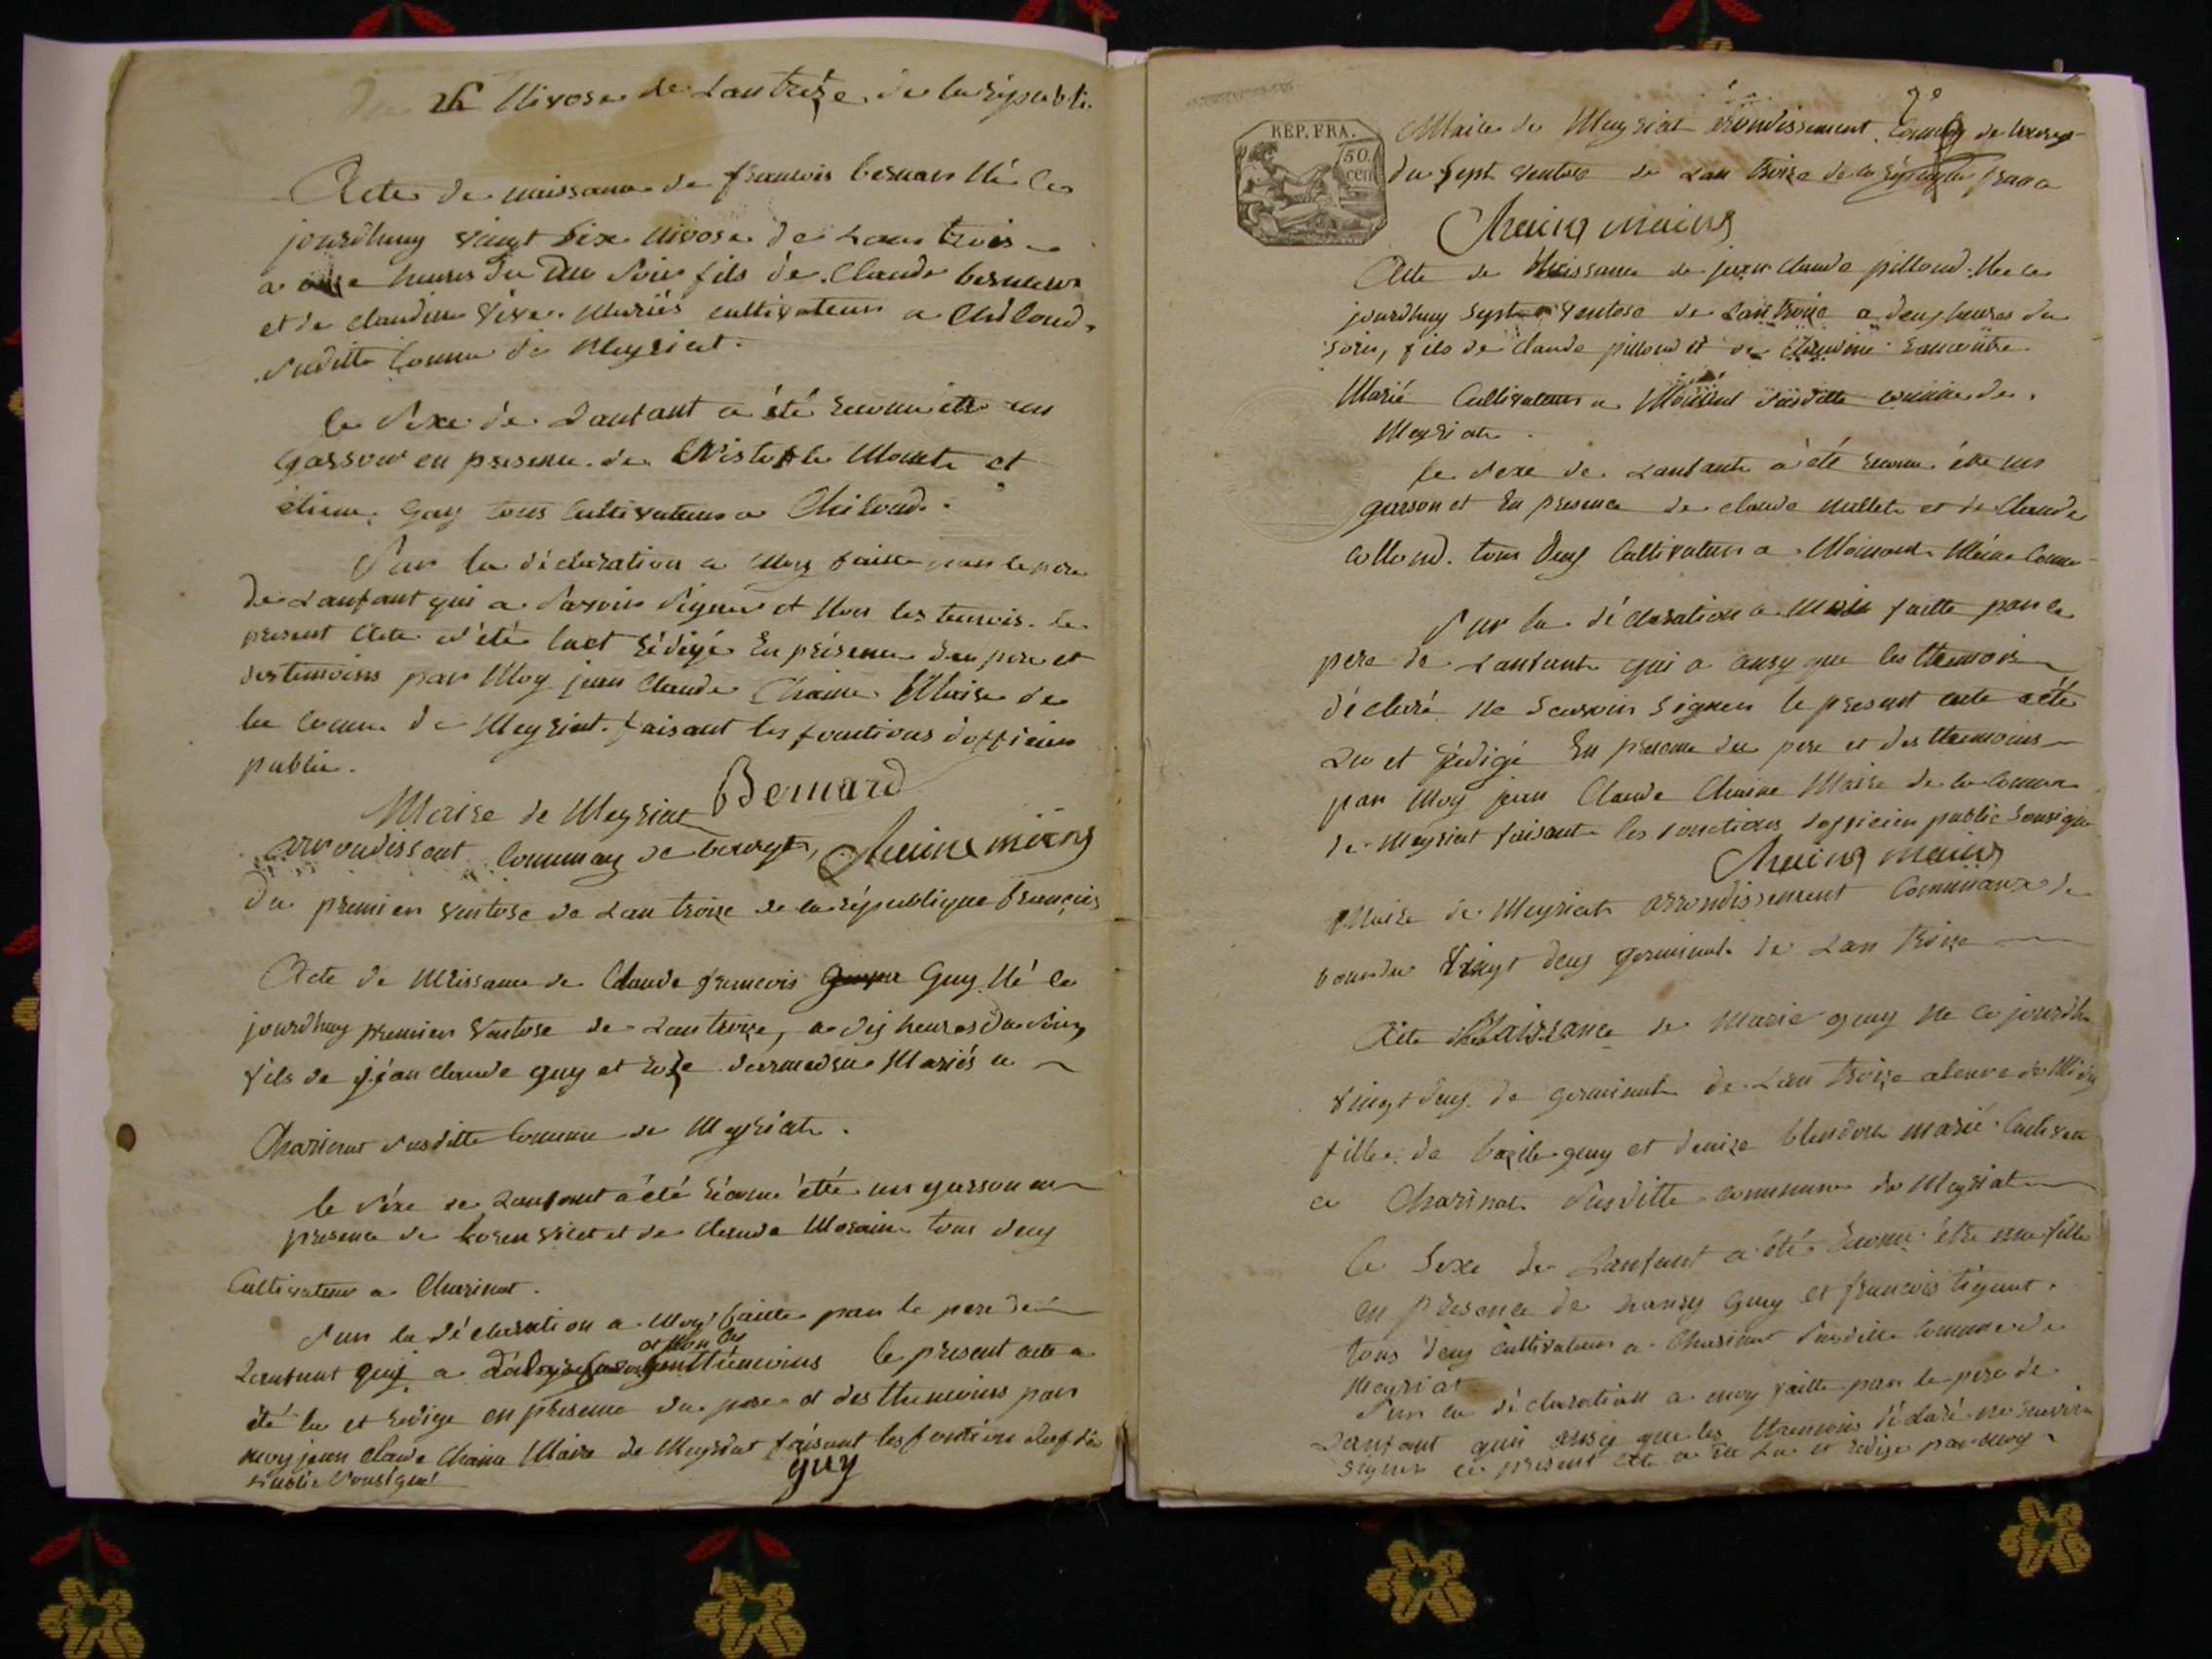 Du 26 Nivose de Lan treze de la républi.
Acte de naissance de francois besnar Né ce
jourdhuy vingt Six nivose de Lan treis
a onze heures du Soir fils de Claude besnar
et de claudine Mariés cultivateurs a Chiloud
Suditte Comune de Meyriat.
le Sexe de Lanfant a été Reconu etre un
garson en presence de et
étiene Guy tous Cultivateurs a Chiloud.
Sur la déclaration a Moy faitte par le pere
de Lanfant qui a Savoir Signer et Non les temois. le
present Acte a été luet Rédigé En présence du pere et
des temoins par Moy jean Claude Chaine Maire de
la Comune de Meyriat. faisant les fonctions dofficier
public.
Maire de Meyriat Bernard
arrondissent Communay de bourg Chaine
Du premier ventose de Lan treize de la république français
Acte de Naissance de Claude francois Guy Né ce
jourdhuy premier Ventose de Lan treize, a dix heures du Soir,
fils de jéan Claude guy et Mariés a
Charinat Susditte Comune de Meyriat.
le Séxe de Lanfant a été Réconu étre un garson en
presence de et de Claude Morain tous deux
Cultivateur a Charinat.
Sur la déclaration a Moy faitte par le pere de
et Non les
Lanfant quy a ttémoins le present acte a
été lu et Redige en presence du pere et des ttemoins par
moy jean Claude Chaine Maire de Meyriat faisant les fontion
Publie Sousigné guy
7e
REP. FRA.
50 cen
Maire de Meyriat arondissement de bourg
du Sept Ventose de Lan treize de la République franca
Chaine
Acte de Naissance de jean Claude pilloud Né ce
jourdhuy Sept ventose de Lan treize a deux heures du
Soir, fils de Claude pilloud et de Claudine
Marié Cultivateurs a Susditte comune de
Meyriat.
le Sexe de Lanfant a été Reconu étre un
garson et En presence de claude et de Claude
collond. tous deux Cultivateurs a Même Comune
Sur la déclaration a Moi faitte par le
pere de Lanfant qui a ausy que les ttemois
déclaré Ne Scavoir Signer le present acte a été
Lu et Rédigé En presence du pere et des ttemoins
par Moy jean Claude Chaine Maire de la Comune
de Meyriat faisant les fonctions dofficier public Sousigné
Chaine
Maire de Meyriat arrondissement Communaux de
bour du Vingt deux germinal de Lan treize
Acte de Naissance de Marie guy Ne ce jourdhu
Vingt deux de germinal de Lan treize
fille de bazile guy et denize marié Cultivate
a Charinat Susditte commune de Meyriat
le Sexe de Lanfant a été Reconu étre une fille
en presence de guy et francois
tous deux cultivateurs a Charinat Susditte Comune de
Meyriat
Sur la déclaration a moy faitte par le pere de
Lanfant quii ausy que les ttemoins déclaré ne Scavoir
Signer le present acte a été Lu et Redige par moy